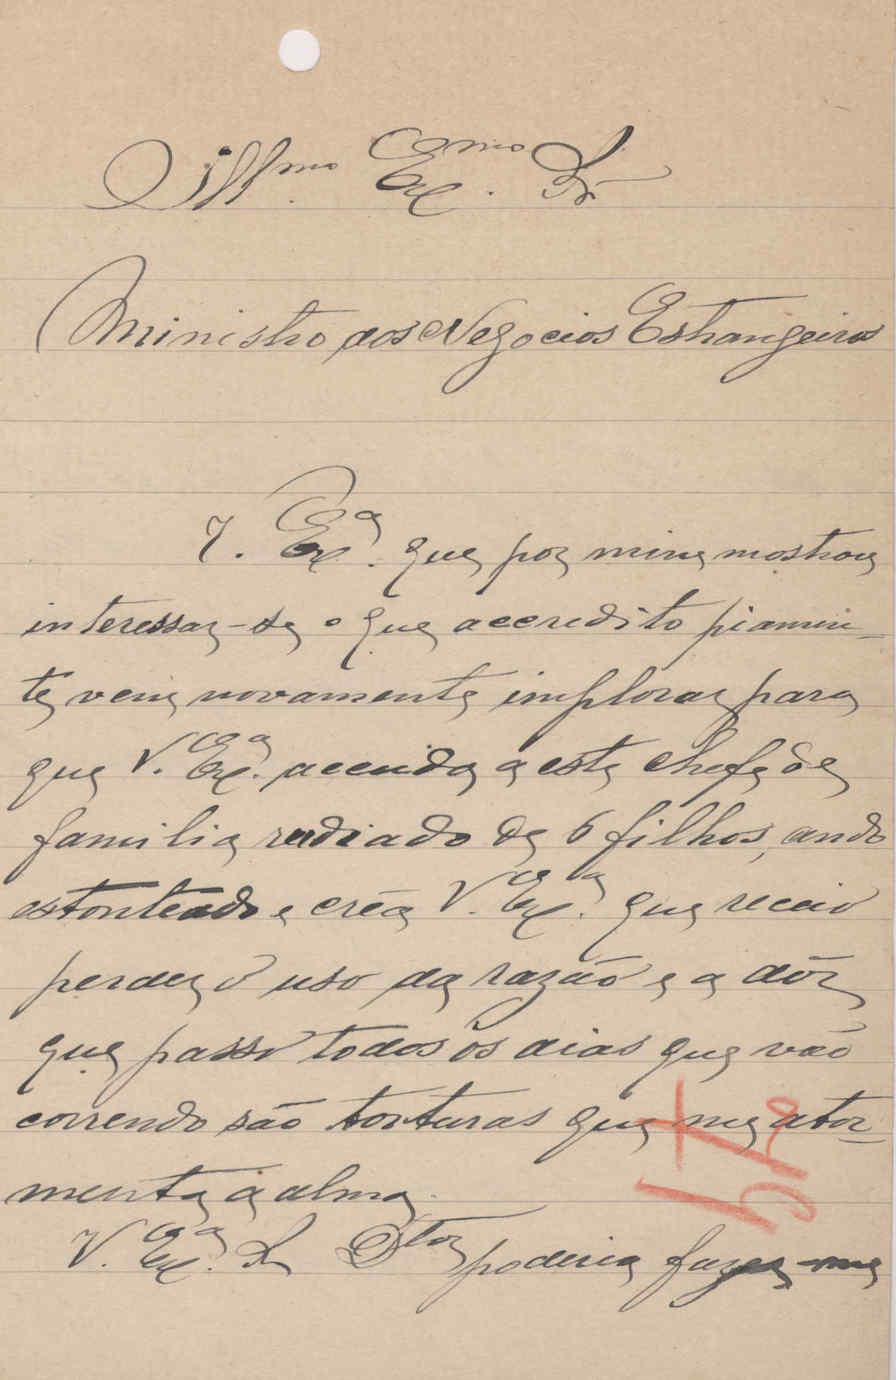 Illmo. Exmo. Sr
Ministro dos Negocios Estrangeiros
V. Exa. que por mim mostrou
interessar-se o que accredito piamen-
te vem novamente implorar para
que V. Exa. accuda a este chefe de
familia rudiado de 6 filhos, ando
estonteado e crêa V. Exa. que receio
perder o uso da razão e a dôr
que passo todos os dias que vão
correndo são torturas que me ator-
menta a alma.
V. Exa. Sr Dtor poderia fazer-me